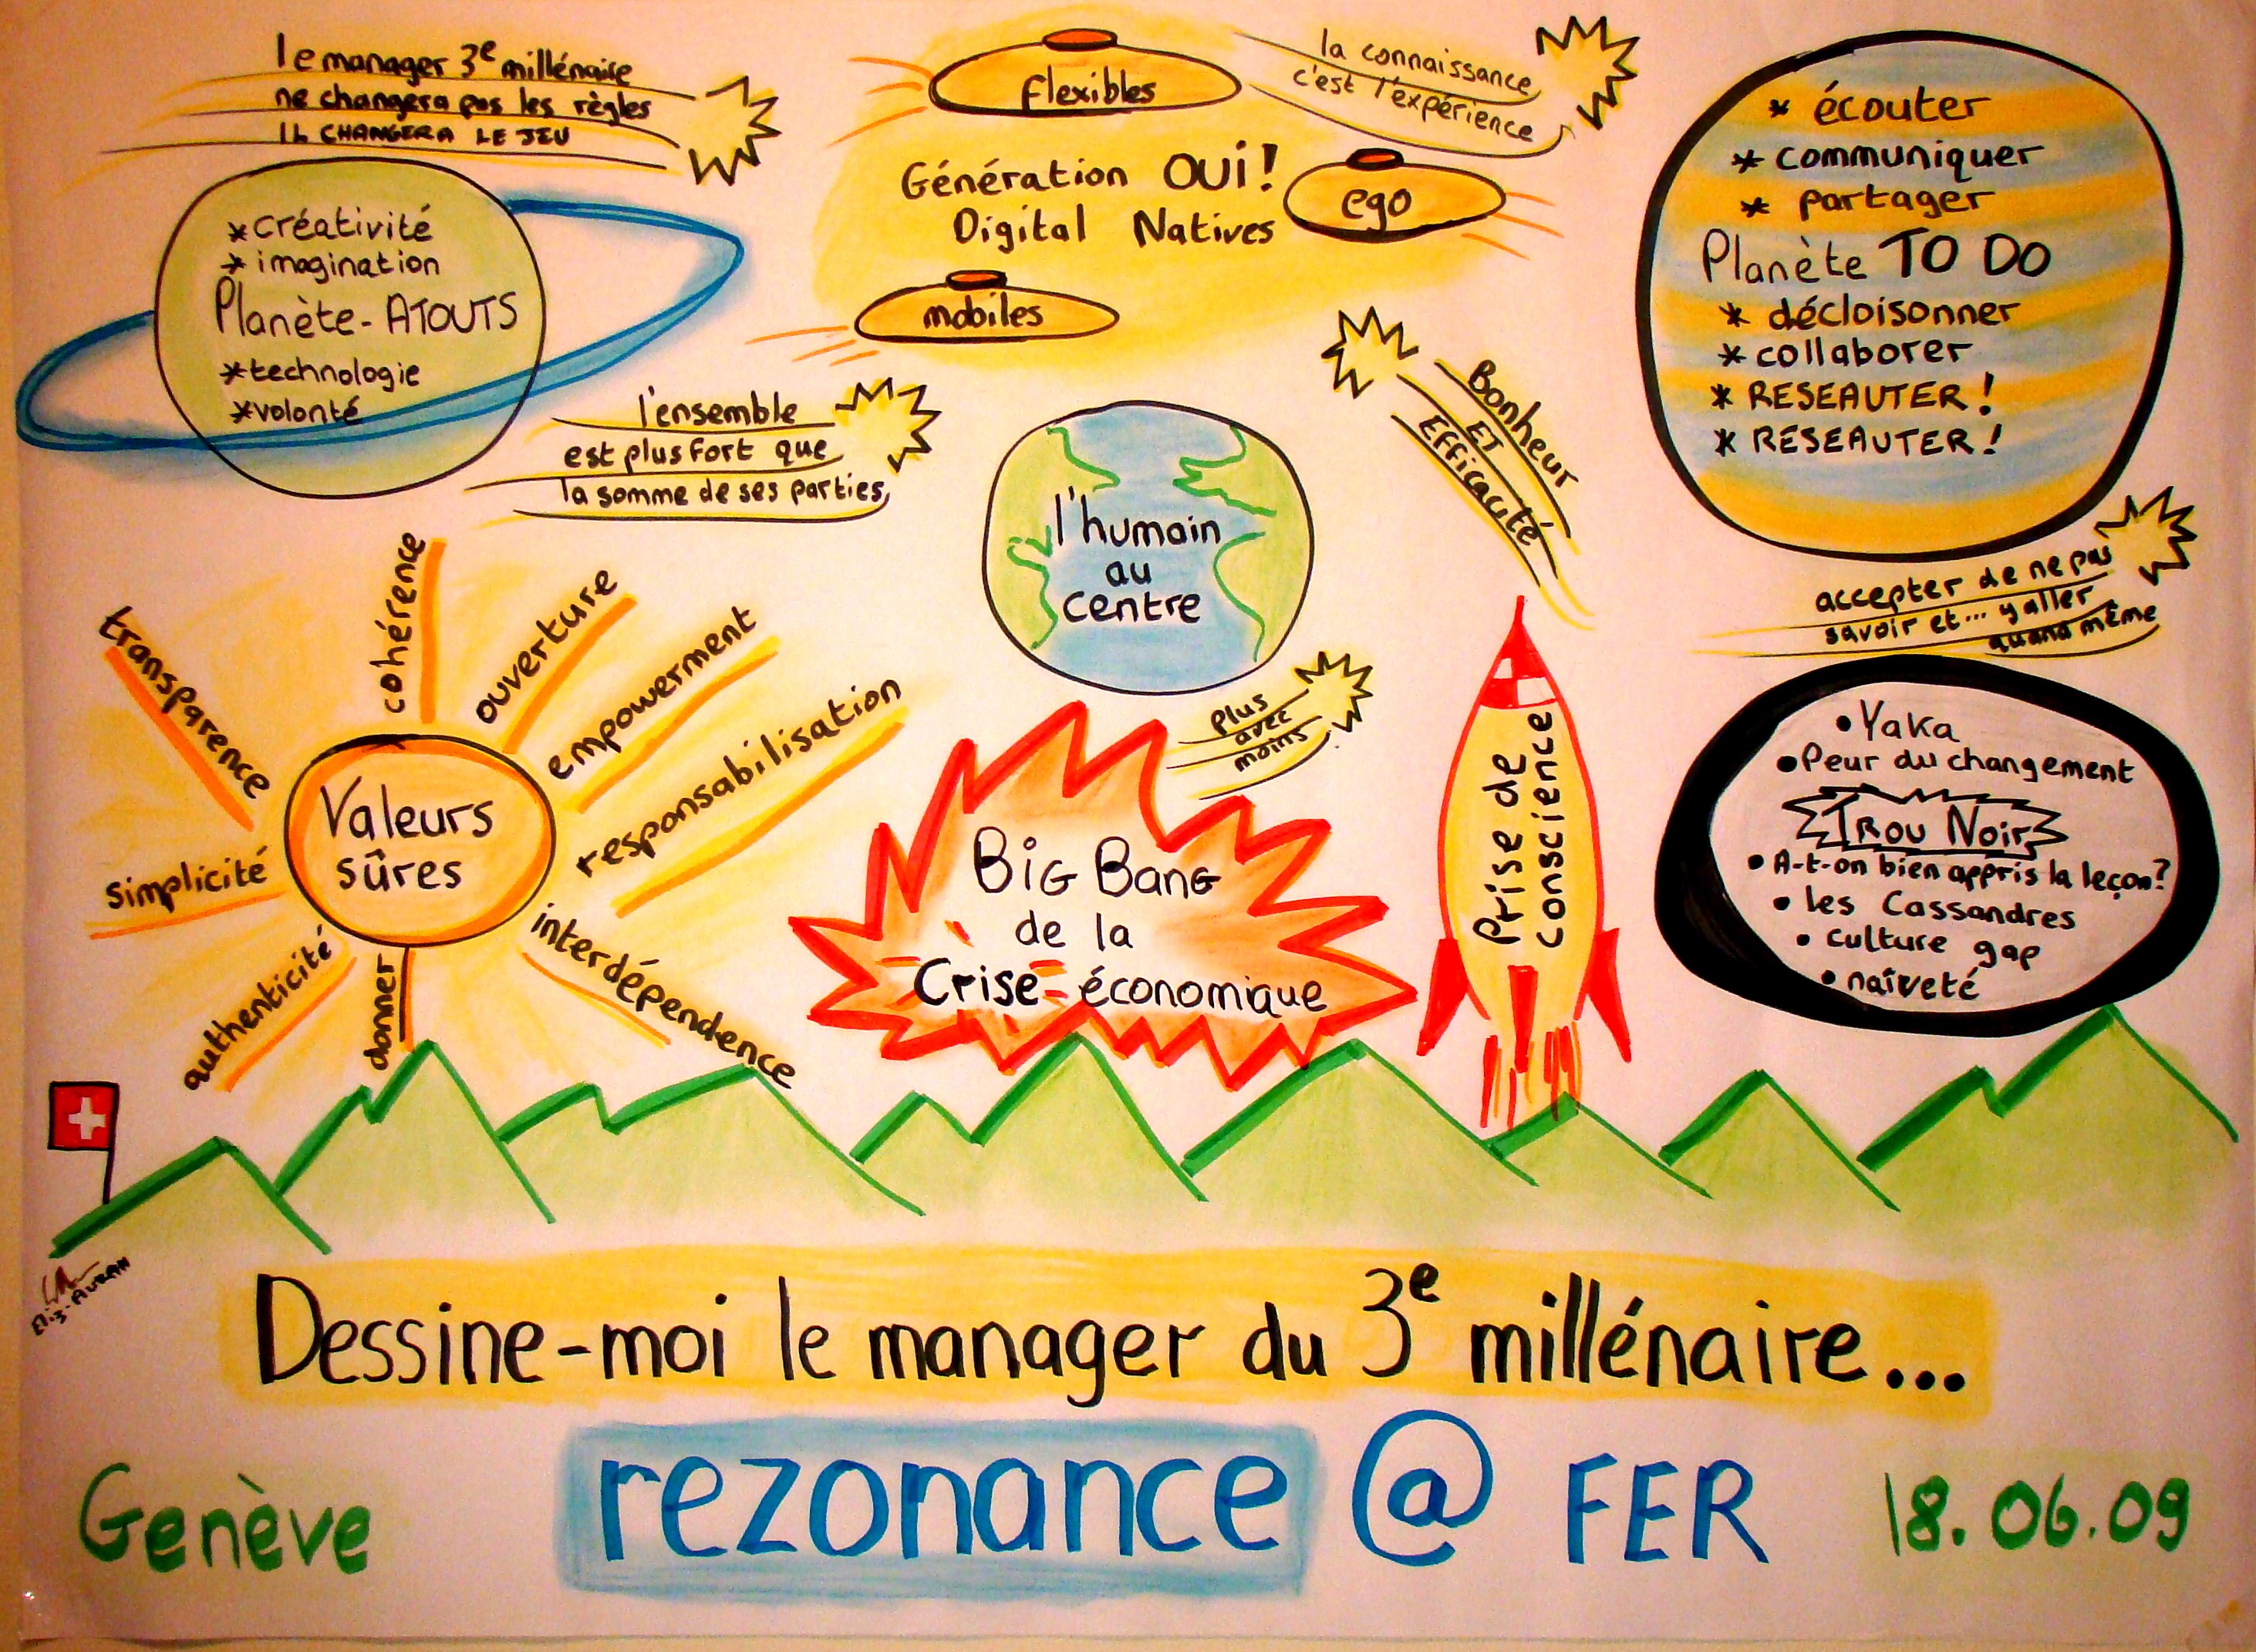 le manager 3e millénaire
ne changera pas les règles
IL CHANGERA LE JEU
* créativité
* imagination
Planète-ATOUTS
* technologie
* volonté
flexibles
Génération OUI!
Digital Natives
ego
mobiles
la connaissance
c'est l'expérience
* écouter
* communiquer
* partager
Planète TO DO
* décloisonner
* collaborer
* RESEAUTER!
* RESEAUTER!
l'ensemble
est plus fort que
la somme de ses parties
l'humain
au
centre
Bonheur
ET
Efficacité
accepter de ne pas
savoir et... y aller
quand même
transparence
cohérence
ouverture
empowerment
responsabilisation
Valeurs
sûres
simplicité
authenticité
donner
interdépendence
plus
avec
moins
BIG BANG
de la
Crise économique
Prise de
conscience
• Yaka
• Peur du changement
TROU NOIR
• A-t-on bien appris la leçon?
• les Cassandres
• culture gap
• naïveté
Dessine-moi le manager du 3e millénaire...
Genève
rezonance @ FER
18.06.09